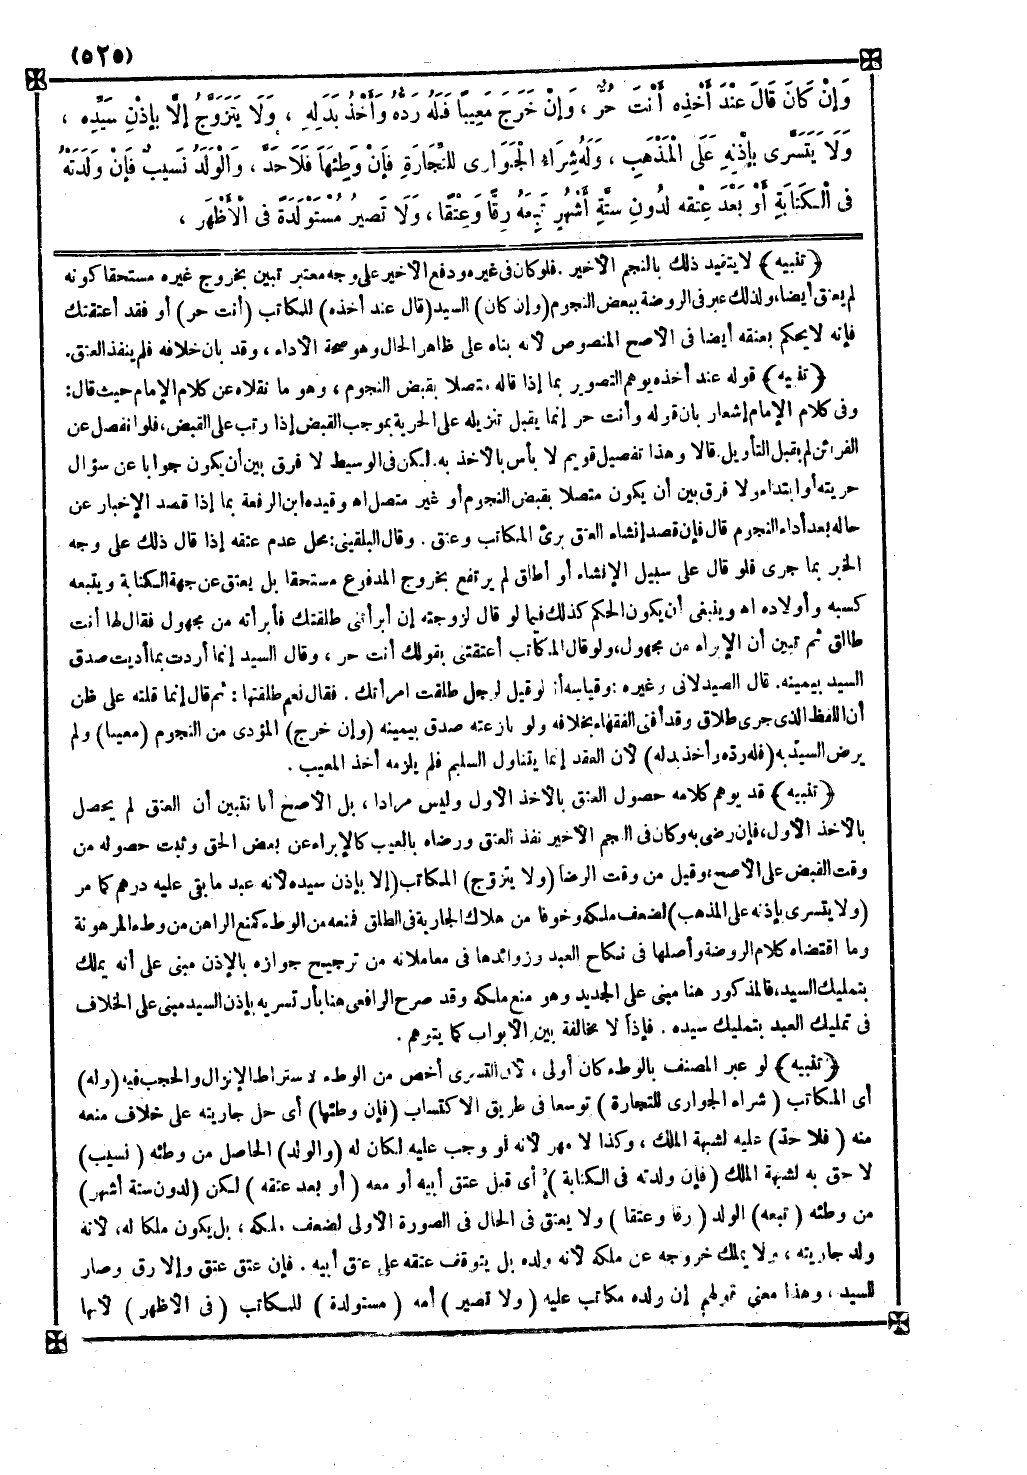 (٥٢٥)
وَإِنْ كَانَ قَالَ عِنْدَ أَخْذِهِ أَنْتَ حُرٌّ ، وَإِنْ خَرَجَ مَعِيبًا فَلَهُ رَدُّهُ وَأَخْذُ بَدَلِهِ ، وَلَا يَتَزَوَّجُ إِلَّا بِإِذْنِ سَيِّدِهِ ،
وَلَا يَتَسَرَّى بِإِذْنِهِ عَلَى الْمَذْهَبِ ، وَلَهُ شِرَاءُ الْجَوَارِى لِلتِّجَارَةِ فَإِنْ وَطِئَهَا فَلَا حَدَّ ، وَالْوَلَدُ نَسِيبٌ فَإِنْ وَلَدَتْهُ
فِى الْكِتَابَةِ أَوْ بَعْدَ عِتْقِهِ لِدُونِ سِتَّةِ أَشْهُرٍ تَبِعَهُ رِقًّا وَعِتْقًا ، وَلَا تَصِيرُ مُسْتَوْلَدَةً فِى الْأَظْهَرِ ،
﴿ تنبيه ﴾ لا يتقيد ذلك بالنجم الأخير . فلو كان فى غيره ودفع الأخير على وجه معتبر تبين بخروج غيره مستحقا كونه
لم يعتق أيضا، ولذلك عبر فى الروضة ببعض النجوم (وإن كان) السيد (قال عند أخذه) للمكاتب (أنت حر) أو فقد أعتقتك
فإنه لا يحكم بعتقه أيضا فى الأصح المنصوص لأنه بناه على ظاهر الحال وهو صحة الأداء ، وقد بان خلافه فلم ينفذ العتق.
﴿ تنبيه ﴾ قوله عند أخذه يوهم التصوير بما إذا قاله متصلا بقبض النجوم ، وهو ما نقلاه عن كلام الإمام حيث قال:
وفى كلام الإمام إشعار بان قوله وأنت حر إنما يقبل تنزيله على الحرية بموجب القبض إذا رتب على القبض، فلو انفصل عن
القرائن لم يقبل التأويل. قالا وهذا تفصيل قويم لا بأس بالأخذ به. لكن فى الوسيط لا فرق بين أن يكون جوابا عن سؤال
حريته أو ابتداء ولا فرق بين أن يكون متصلا بقبض النجوم أو غير متصل اه وقيده ابن الرفعة بما إذا قصد الإخبار عن
حاله بعد أداء النجوم قال فإن قصد إنشاء العتق برئ المكاتب وعتق . وقال البلقينى: محل عدم عتقه إذا قال ذلك على وجه
الخبر بما جرى فلو قال على سبيل الإنشاء أو أطلق لم يرتفع بخروج المدفوع مستحقا بل يعتق عن جهة الكتابة ويتبعه
كسبه وأولاده اه وينبغى أن يكون الحكم كذلك فيما لو قال لزوجته إن أبرأتنى طلقتك فأبرأته من مجهول فقال لها أنت
طالق ثم تبين أن الإبراء من مجهول، ولو قال المكاتب أعتقتنى بقولك أنت حر ، وقال السيد إنما أردت بما أديت صدق
السيد بيمينه. قال الصيدلانى وغيره : وقياسه أنه لو قيل لرجل طلقت امرأتك . فقال نعم طلقتها : ثم قال إنما قلته على ظن
أن اللفظ الذى جرى طلاق وقد أفتى الفقهاء بخلافه ولو نازعته صدق بيمينه (وإن خرج) المؤدى من النجوم (معيبا) ولم
يرض السيد به (فله رده وأخذ بدله) لأن العقد إنما يتناول السليم فلم يلزمه أخذ المعيب .
﴿ تنبيه ﴾ قد يوهم كلامه حصول العتق بالأخذ الأول وليس مرادا ، بل الأصح أنا نتبين أن العتق لم يحصل
بالأخذ الأول، فإن رضى به وكان فى النجم الأخير نفذ العتق ورضاه بالعيب كالإبراء عن بعض الحق وثبت حصوله من
وقت القبض على الأصح، وقيل من وقت الرضا (ولا يتزوج) المكاتب (إلا بإذن سيده لأنه عبد ما بقى عليه درهم كما مر
(ولا يتسرى بإذنه على المذهب) لضعف ملكه وخوفا من هلاك الجارية فى الطلق فمنعه من الوطء كمنع الراهن من وطء المرهونة
وما اقتضاه كلام الروضة وأصلها فى نكاح العبد وزوائدها فى معاملاته من ترجيح جوازه بالإذن مبنى على أنه يملك
بتمليك السيد، فالمذكور هنا مبنى على الجديد وهو منع ملكه وقد صرح الرافعى هنا بأن تسريه بإذن السيد مبنى على الخلاف
فى تمليك العبد بتمليك سيده . فإذا لا مخالفة بين الأبواب كما يتوهم .
﴿ تنبيه ﴾ لو عبر المصنف بالوطء كان أولى ، لأن التسرى أخص من الوطء لاشتراط الإنزال والحجب فيه (وله)
أى المكاتب ( شراء الجوارى للتجارة ) توسعا فى طريق الاكتساب (فإن وطئها) أى حل جاريته على خلاف منعه
منه ( فلا حد) عليه لشبهة الملك ، وكذا لا مهر لأنه لو وجب عليه لكان له (والولد) الحاصل من وطئه ( نسيب)
لاحق به لشبهة الملك ( فإن ولدته فى الكتابة ) أى قبل عتق أبيه أو معه ( أو بعد عتقه ) لكن (لدون ستة أشهر)
من وطئه ( تبعه) الولد ( رقا وعتقا ) ولا يعتق فى الحال فى الصورة الأولى لضعف ملكه ، بل يكون ملكا له، لأنه
ولد جاريته ، ولا يملك خروجه عن ملكه لأنه ولده بل يتوقف عتقه على عتق أبيه . فإن عتق عتق وإلا رق وصار
للسيد ، وهذا معنى قولهم إن ولده مكاتب عليه ( ولا تصير ) أمه ( مستولدة ) للمكاتب ( فى الأظهر ) لأنها